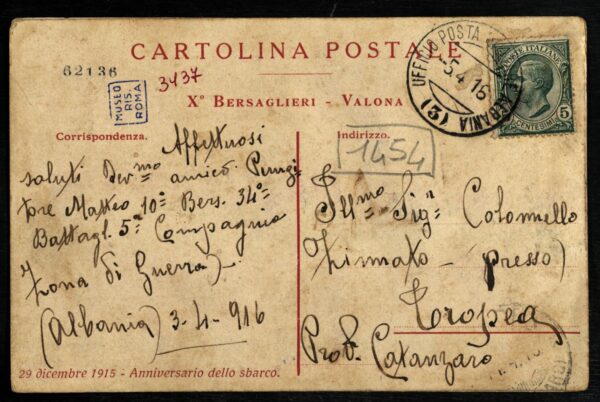 CARTOLINA POSTALE
62136
3437
MUSEO
RIS.
ROMA
X° BERSAGLIERI - VALONA
UFFICIO POSTA
5.4.16
ALBANIA
(3)
POSTE ITALIANE
CENTESIMI 5
Corrispondenza.
Affettuosi
saluti Dev.mo amico
tore Matteo 10° Bers. 34°
Battagl. 5a Compagnia
Zona di Guerra)
(Albania) 3-4-916
Indirizzo.
1454
Ill.mo Sig.r Colonnello
(presso)
Tropea
Prov. Catanzaro
29 dicembre 1915 - Anniversario dello sbarco.